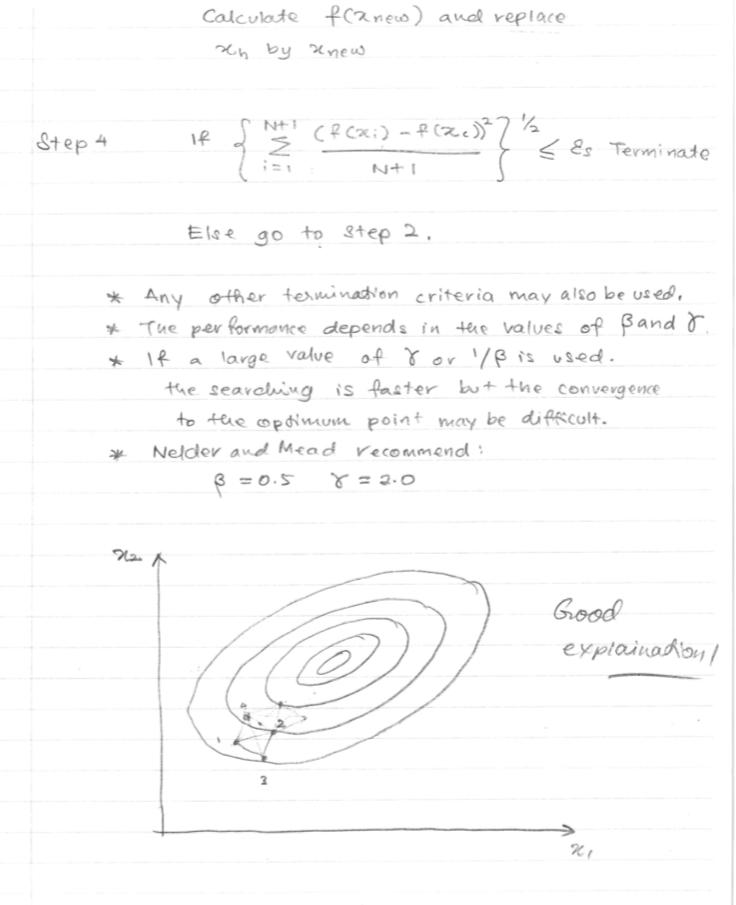 Calculate f(xnew) and replace
xh by xnew
Step 4 If { N+1 Σ i=1 (f(xi) - f(xc))² / N+1 }^1/2 ≤ εs Terminate
Else go to Step 2.
* Any other termination criteria may also be used.
* The performance depends in the values of β and γ.
* If a large value of γ or 1/β is used.
the searching is faster but the convergence
to the optimum point may be difficult.
* Nelder and Mead recommend:
β = 0.5 γ = 2.0
x2
Good
explaination!
2
3
x1